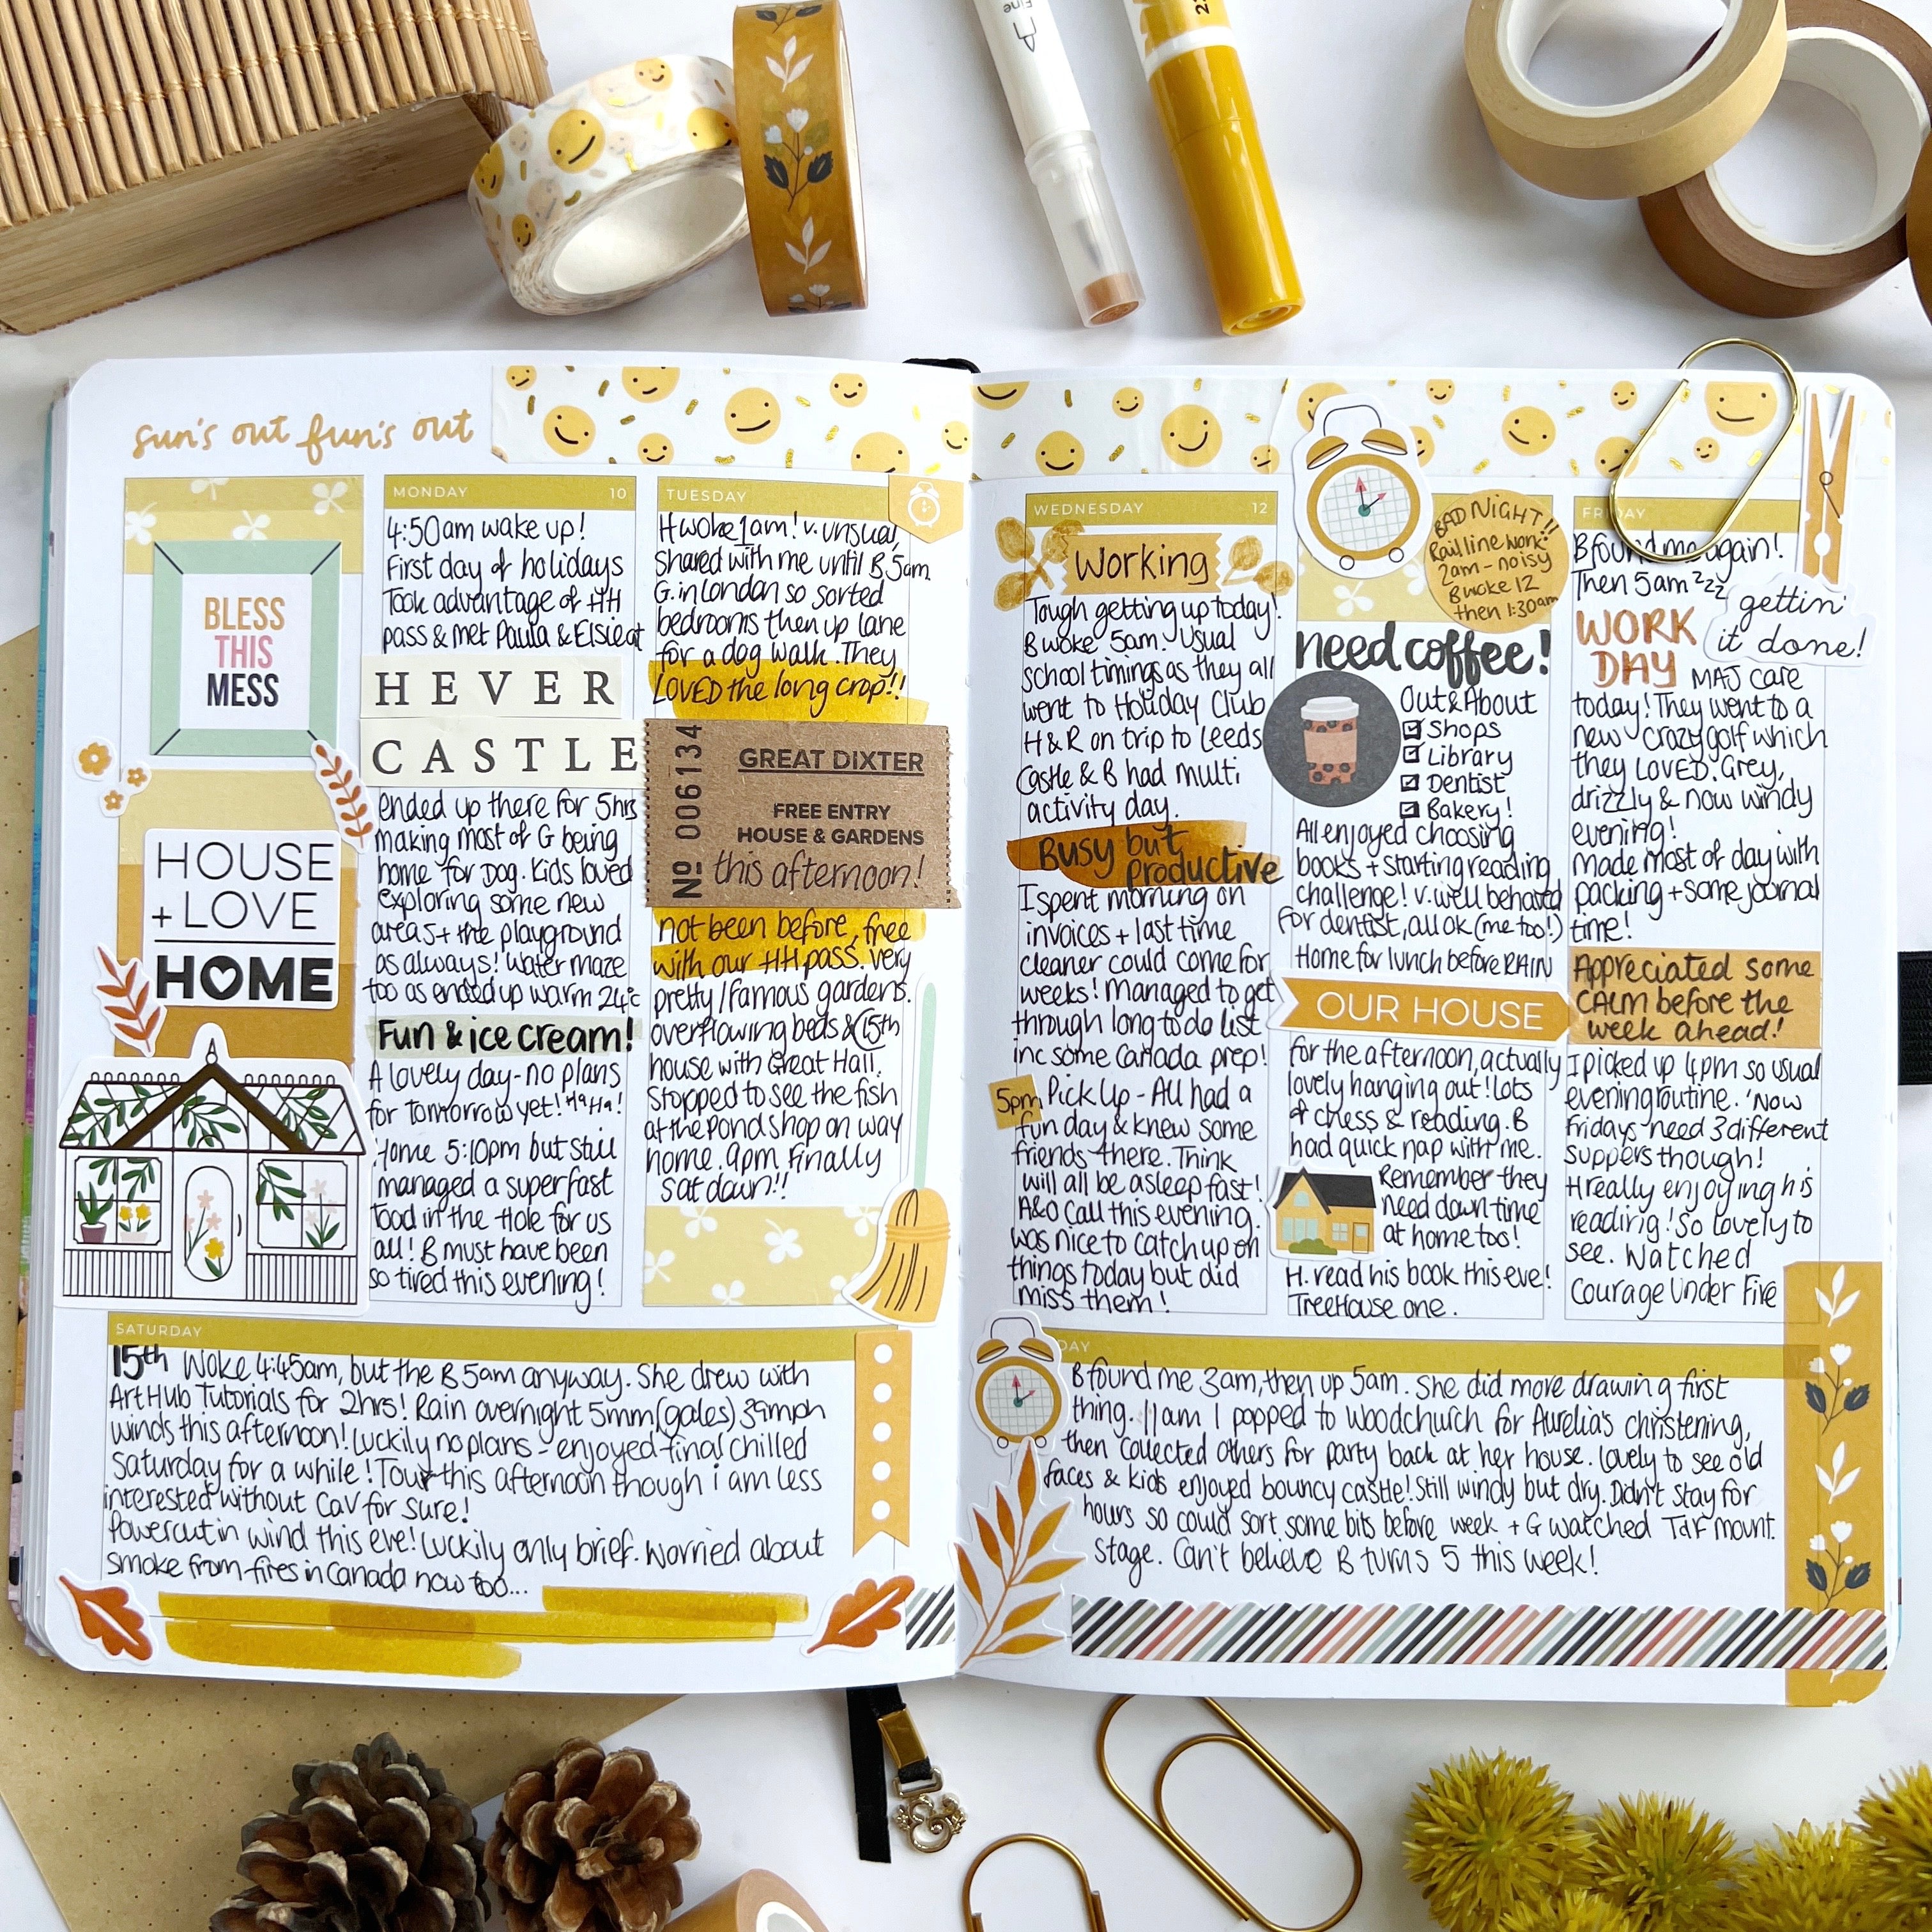 Fine
sun's out fun's out
BLESS
THIS
MESS
HOUSE
+ LOVE
HOME
MONDAY 10
4:50am wake up!
First day of holidays
Took advantage of HH
pass & met Paula & Elsie at
HEVER
CASTLE
ended up there for 5hrs
making most of G being
home for Dog. Kids loved
exploring some new
areas + the playground
as always! Water maze
too as ended up warm 24°c
Fun & ice cream!
A lovely day - no plans
for tomorrow yet! Ha Ha!
Home 5:10pm but still
managed a super fast
Toad in the Hole for us
all! B must have been
so tired this evening!
TUESDAY
H woke 1am! v. unusual,
shared with me until B 5am.
G. in London so sorted
bedrooms then up lane
for a dog walk. They
LOVED the long crop!!
No 006134
GREAT DIXTER
FREE ENTRY
HOUSE & GARDENS
this afternoon!
not been before, free
with our HH pass. very
pretty/famous gardens.
overflowing beds & 15th
house with Great Hall.
Stopped to see the fish
at the Pond shop on way
home. 9pm finally
sat down!!
WEDNESDAY 12
Working
Tough getting up today!
B woke 5am. Usual
school timings as they all
went to Holiday Club
H & R on trip to Leeds
Castle & B had multi
activity day.
Busy but
productive
I spent morning on
invoices + last time
cleaner could come for
weeks! Managed to get
through long to do list
inc some Canada prep!
5pm Pick Up - All had a
fun day & knew some
friends there. Think
will all be asleep fast!
A&O call this evening.
Was nice to catch up on
things today but did
miss them!
BAD NIGHT!!
Rail line work!
2am - noisy
B woke 12
then 1:30am
need coffee!
Out & About
Shops
Library
Dentist
Bakery!
All enjoyed choosing
books + starting reading
challenge! v. well behaved
for dentist, all ok (me too!)
Home for lunch before RAIN
OUR HOUSE
for the afternoon, actually
lovely hanging out! Lots
of chess & reading. B
had quick nap with me.
Remember they
need down time
at home too!
H. read his book this eve!
TreeHouse one.
FRIDAY
B found me again!
Then 5am zzz
gettin'
it done!
WORK
DAY MAJ care
today! They went to a
new crazy golf which
they LOVED. Grey,
drizzly & now windy
evening!
made most of day with
packing + some journal
time!
Appreciated some
CALM before the
week ahead!
I picked up 4pm so usual
evening routine. 'Now
Fridays need 3 different
suppers though!
H really enjoying his
reading! So lovely to
see. Watched
Courage Under Fire
SATURDAY
15th Woke 4:45am, but the B 5am anyway. She drew with
Art Hub Tutorials for 2hrs! Rain overnight 5mm (gales) 39mph
winds this afternoon! Luckily no plans - enjoyed final chilled
Saturday for a while! Tour this afternoon though i am less
interested without Cav for sure!
Powercut in wind this eve! Luckily only brief. Worried about
smoke from fires in Canada now too...
DAY
B found me 3am, then up 5am. She did more drawing first
thing. 11am I popped to Woodchurch for Aurelia's christening,
then collected others for party back at her house. Lovely to see old
faces & kids enjoyed bouncy castle! Still windy but dry. Didn't stay for
hours so could sort some bits before week + G watched TdF mount.
stage. Can't believe B turns 5 this week!